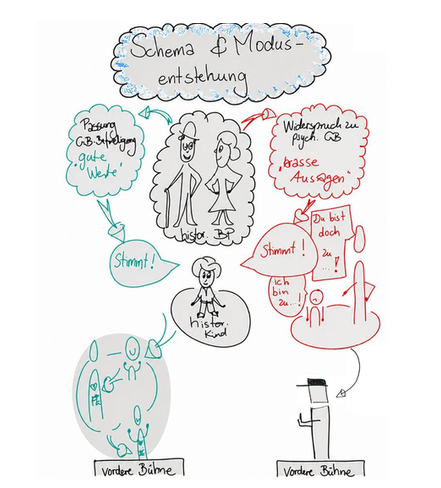 Schema & Modus-
entstehung
Passung
GB-Befriedigung
"gute
Werte"
histor. BP
Widerspruch zu
psych. GB
"krasse
Aussagen"
Stimmt!
Stimmt!
Du bist
doch
zu
...!
ich
bin
zu...!
histor.
Kind
vordere Bühne
vordere Bühne